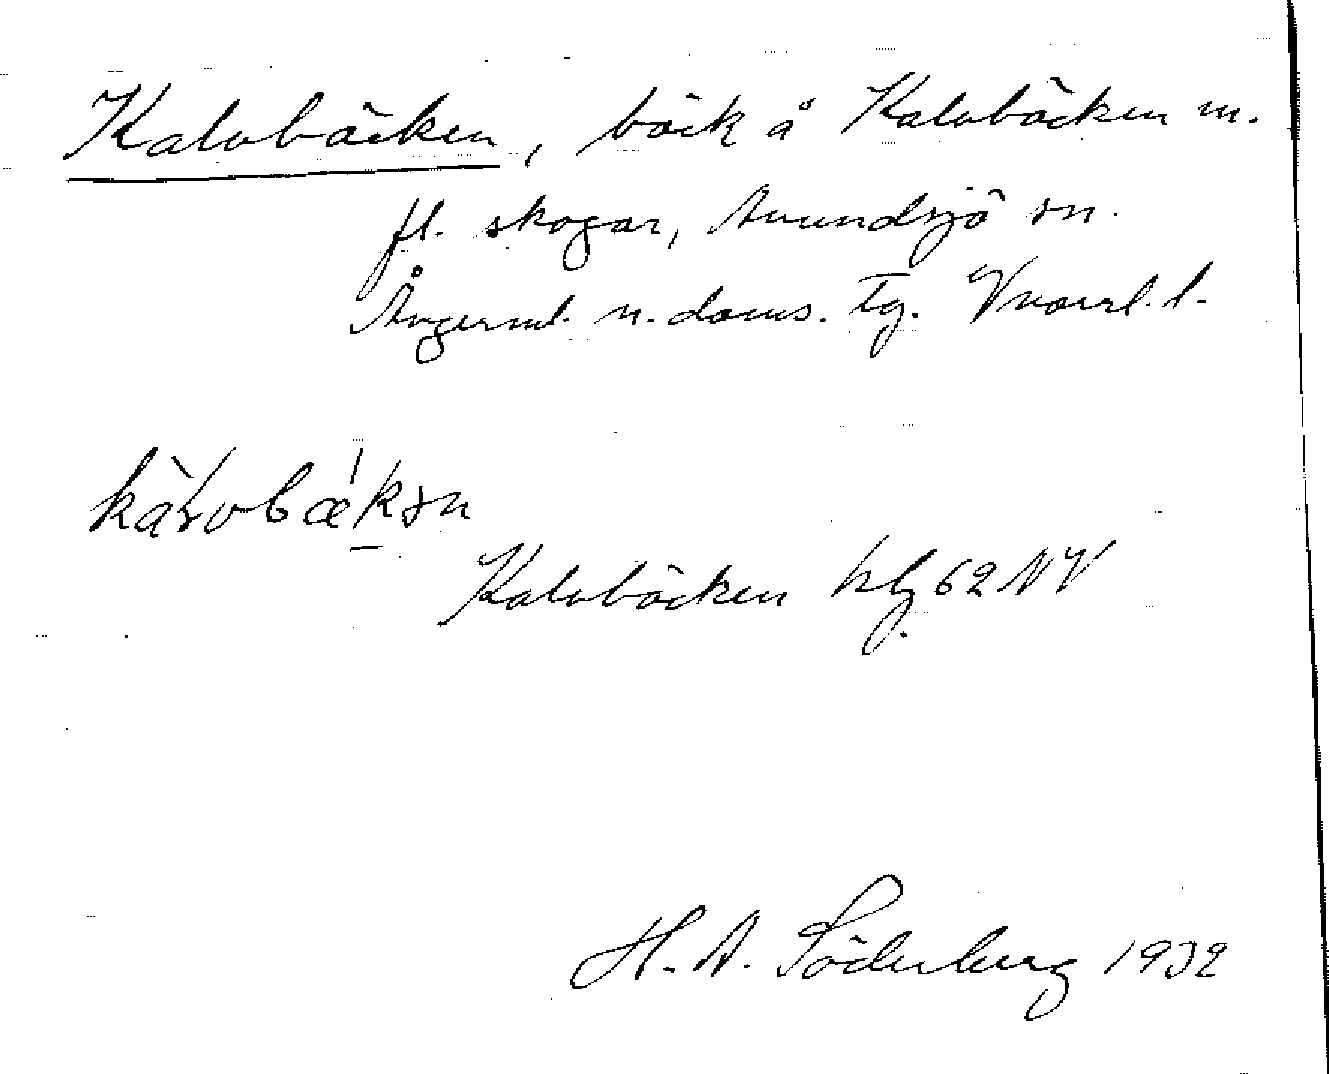 Kalvbäcken, bäck å Kalvbäcken m.
fl. skogar, Anundsjö sn.
Ångerml. n. doms. tg. Vnorrl. l.
Kalvbäcken hlg 62 NV
H. A. Söderberg 1932